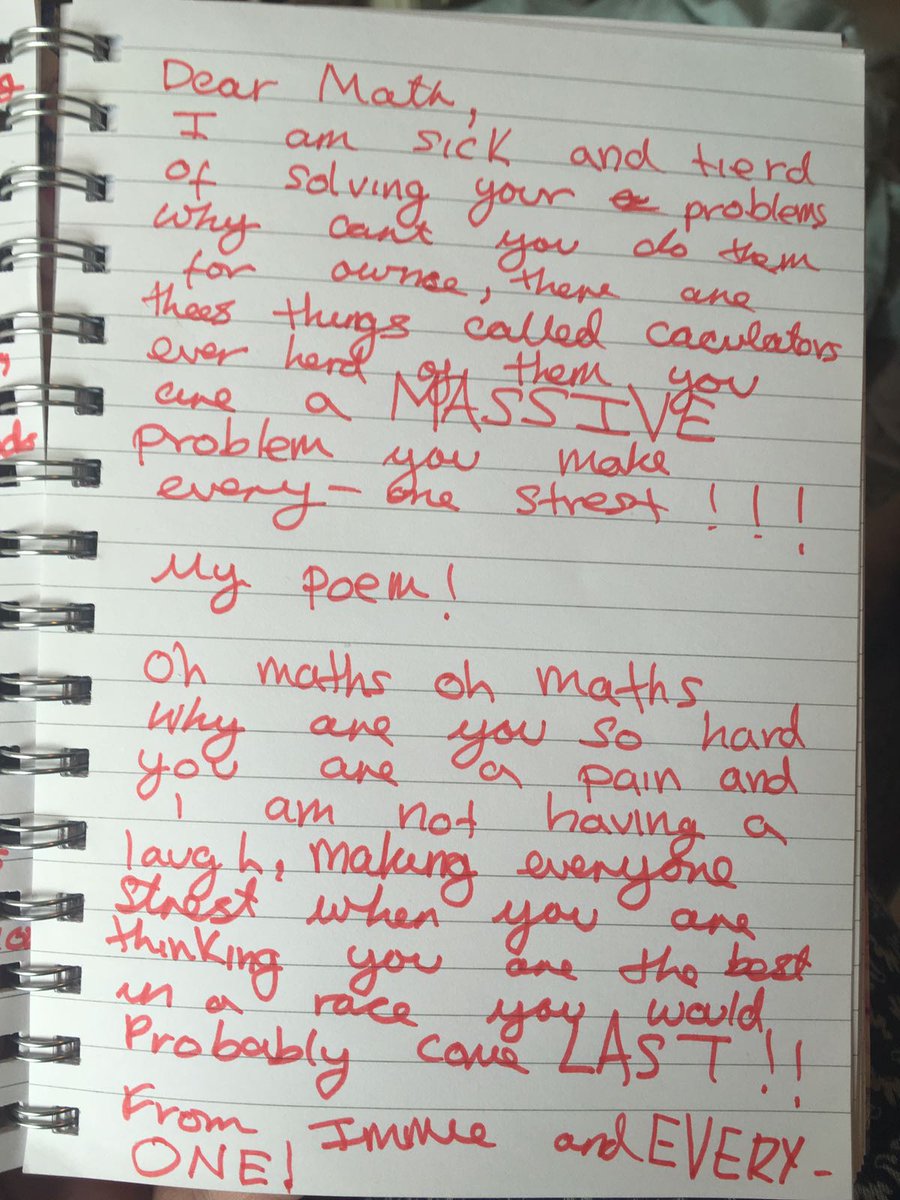 Dear Math,
I am sick and tierd
of solving your problems
Why cant you do them
for ownce, there are
thees things called caculators
ever herd of them you
are a MASSIVE
problem you make
every-one strest!!!
My poem!
Oh maths oh maths
Why are you so hard
you are a pain and
i am not having a
laugh, making everyone
strest when you are
thinking you are the best
in a race you would
Probably come LAST!!
From Immie and EVERY-
ONE!